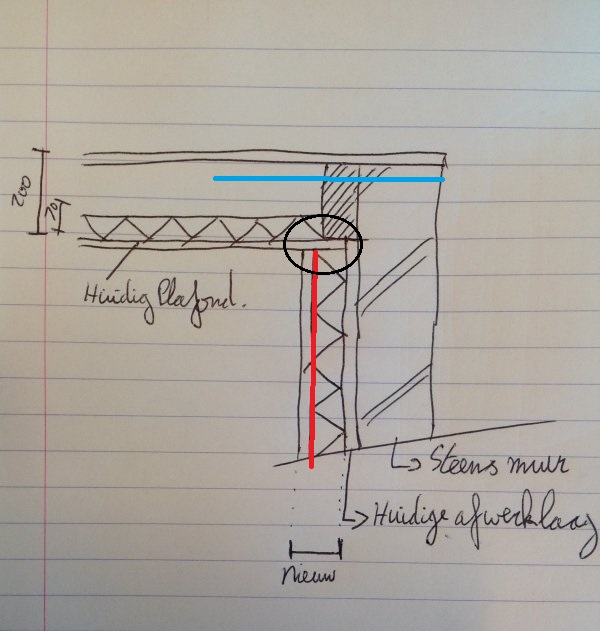 200
70
Huidig Plafond.
Steens muur
Huidige afwerklaag
Nieuw